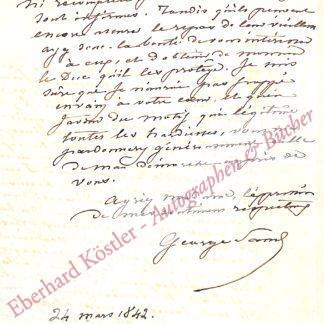 tout infirmes. Tandis qu'ils peuvent
encore assurer le repos de leur vieillesse
ayez donc la bonté de vous intéresser
à eux, et d'obtenir de monsieur
le Duc qu'il les protège. Je suis
sûre que je n'aurai pas frappé
en vain à votre cœur, et qu'en
faveur du motif qui légitime
toutes les hardiesses, vous me
pardonnerez généreusement celle
de ma démarche auprès de
vous.
Agréez madame, l'expression
de mes sentiments respectueux
George Sand
24 mars 1842.
Eberhard Köstler - Autographen & Bücher